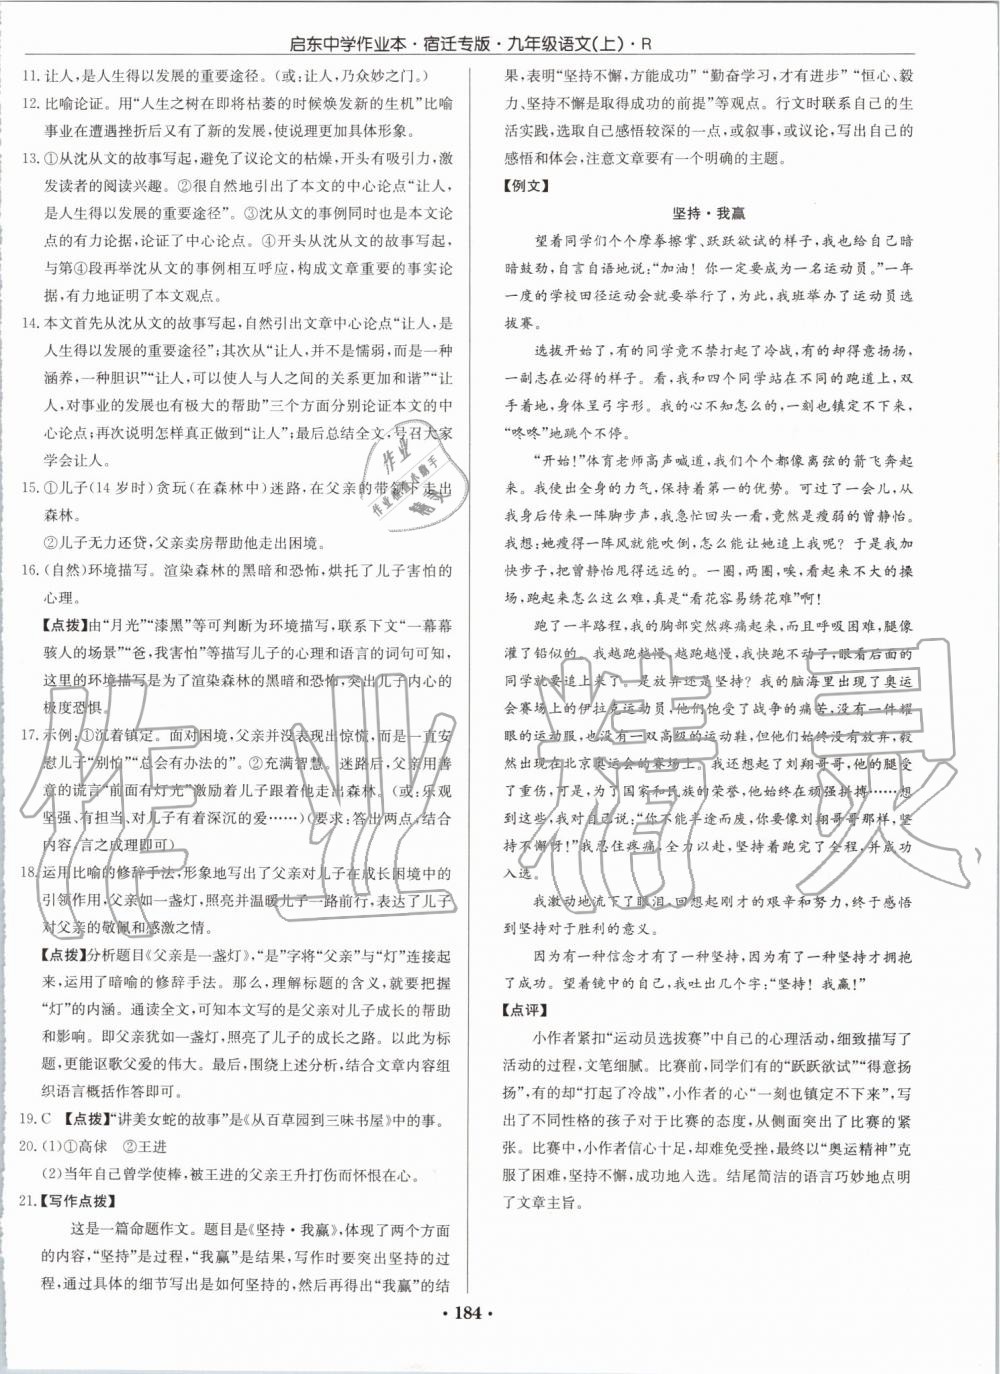 启东中学作业本·宿迁专版·九年级语文(上)·R
11. 让人，是人生得以发展的重要途径。(或：让人，乃众妙之门。)
12. 比喻论证。用“人生之树在即将枯萎的时候焕发新的生机”比喻
事业在遭遇挫折后又有了新的发展，使说理更加具体形象。
13. ①从沈从文的故事写起，避免了议论文的枯燥，开头有吸引力，激
发读者的阅读兴趣。②很自然地引出了本文的中心论点“让人，
是人生得以发展的重要途径”。③沈从文的事例同时也是本文论
点的有力论据，论证了中心论点。④开头从沈从文的故事写起，
与第④段再举沈从文的事例相互呼应，构成文章重要的事实论
据，有力地证明了本文观点。
14. 本文首先从沈从文的故事写起，自然引出文章中心论点“让人，是
人生得以发展的重要途径”；其次从“让人，并不是懦弱，而是一种
涵养，一种胆识”“让人，可以使人与人之间的关系更加和谐”“让
人，对事业的发展也有极大的帮助”三个方面分别论证本文的中
心论点；再次说明怎样真正做到“让人”；最后总结全文，号召大家
学会让人。
15. ①儿子(14岁时)贪玩(在森林中)迷路，在父亲的带领下走出
森林。
②儿子无力还贷，父亲卖房帮助他走出困境。
16. (自然)环境描写。渲染森林的黑暗和恐怖，烘托了儿子害怕的
心理。
【点拨】由“月光”“漆黑”等可判断为环境描写，联系下文“一幕幕
骇人的场景”“爸，我害怕”等描写儿子的心理和语言的词句可知，
这里的环境描写是为了渲染森林的黑暗和恐怖，突出儿子内心的
极度恐惧。
17. 示例：①沉着镇定。面对困境，父亲并没表现出惊慌，而是一直安
慰儿子“别怕”“总会有办法的”。②充满智慧。迷路后，父亲用善
意的谎言“前面有灯光”激励着儿子跟着他走出森林。(或：乐观
坚强、有担当、对儿子有着深沉的爱……)(要求：答出两点，结合
内容，言之成理即可)
18. 运用比喻的修辞手法，形象地写出了父亲对儿子在成长困境中的
引领作用，父亲如一盏灯，照亮并温暖儿子一路前行，表达了儿子
对父亲的敬佩和感激之情。
【点拨】分析题目《父亲是一盏灯》，“是”字将“父亲”与“灯”连接起
来，运用了暗喻的修辞手法。那么，理解标题的含义，就要把握
“灯”的内涵。通读全文，可知本文写的是父亲对儿子成长的帮助
和影响。即父亲犹如一盏灯，照亮了儿子的成长之路。以此为标
题，更能讴歌父爱的伟大。最后，围绕上述分析，结合文章内容组
织语言概括作答即可。
19. C 【点拨】“讲美女蛇的故事”是《从百草园到三味书屋》中的事。
20. (1)①高俅 ②王进
(2)当年自己曾学使棒，被王进的父亲王升打伤而怀恨在心。
21. 【写作点拨】
这是一篇命题作文。题目是《坚持·我赢》，体现了两个方面
的内容，“坚持”是过程，“我赢”是结果，写作时要突出坚持的过
程，通过具体的细节写出是如何坚持的，然后再得出“我赢”的结
果，表明“坚持不懈，方能成功”“勤奋学习，才有进步”“恒心、毅
力、坚持不懈是取得成功的前提”等观点。行文时联系自己的生
活实践，选取自己感悟较深的一点，或叙事，或议论，写出自己的
感悟和体会，注意文章要有一个明确的主题。
【例文】
坚持·我赢
望着同学们个个摩拳擦掌、跃跃欲试的样子，我也给自己暗
暗鼓劲，自言自语地说：“加油！你一定要成为一名运动员。”一年
一度的学校田径运动会就要举行了，为此，我班举办了运动员选
拔赛。
选拔开始了，有的同学竟不禁打起了冷战，有的却得意扬扬，
一副志在必得的样子。看，我和四个同学站在不同的跑道上，双
手着地，身体呈弓字形。我的心不知怎么的，一刻也镇定不下来，
“咚咚”地跳个不停。
“开始！”体育老师高声喊道，我们个个都像离弦的箭飞奔起
来。我使出全身的力气，保持着第一的优势。可过了一会儿，从
我身后传来一阵脚步声，我急忙回头一看，竟然是瘦弱的曾静怡。
我想：她瘦得一阵风就能吹倒，怎么能让她追上我呢？于是我加
快步子，把曾静怡甩得远远的。一圈，两圈，唉，看起来不大的操
场，跑起来怎么这么难，真是“看花容易绣花难”啊！
跑了一半路程，我的胸部突然疼痛起来，而且呼吸困难，腿像
灌了铅似的。我越跑越慢，越跑越慢，我快跑不动了，眼看后面的
同学就要追上来了。是放弃还是坚持？我的脑海里出现了奥运
会赛场上的伊拉克运动员，他们饱受了战争的痛苦，没有一件耀
眼的运动服，也没有一双高级的运动鞋，但他们始终没有放弃，毅
然出现在北京奥运会的赛场上。我又想起了刘翔哥哥，他的腿受
了重伤，可是，为了国家和民族的荣誉，他始终在顽强拼搏……想
到这些，我对自己说：“你不能半途而废，你要像刘翔哥哥那样，坚
持不懈！”我忍住疼痛，全力以赴，坚持着跑完了全程，并成功
入选。
我激动地流下了眼泪。回想起刚才的艰辛和努力，终于感悟
到坚持对于胜利的意义。
因为有一种信念才有了一种坚持，因为有了一种坚持才拥抱
了成功。望着镜中的自己，我吐出几个字：“坚持！我赢！”
【点评】
小作者紧扣“运动员选拔赛”中自己的心理活动，细致描写了
活动的过程，文笔细腻。比赛前，同学们有的“跃跃欲试”“得意扬
扬”，有的却“打起了冷战”，小作者的心“一刻也镇定不下来”，写出
了不同性格的孩子对于比赛的态度，从侧面突出了比赛的紧
张。比赛中，小作者信心十足，却难免受挫，最终以“奥运精神”克
服了困难，坚持不懈，成功地入选。结尾简洁的语言巧妙地点明
了文章主旨。
·184·
作业精灵